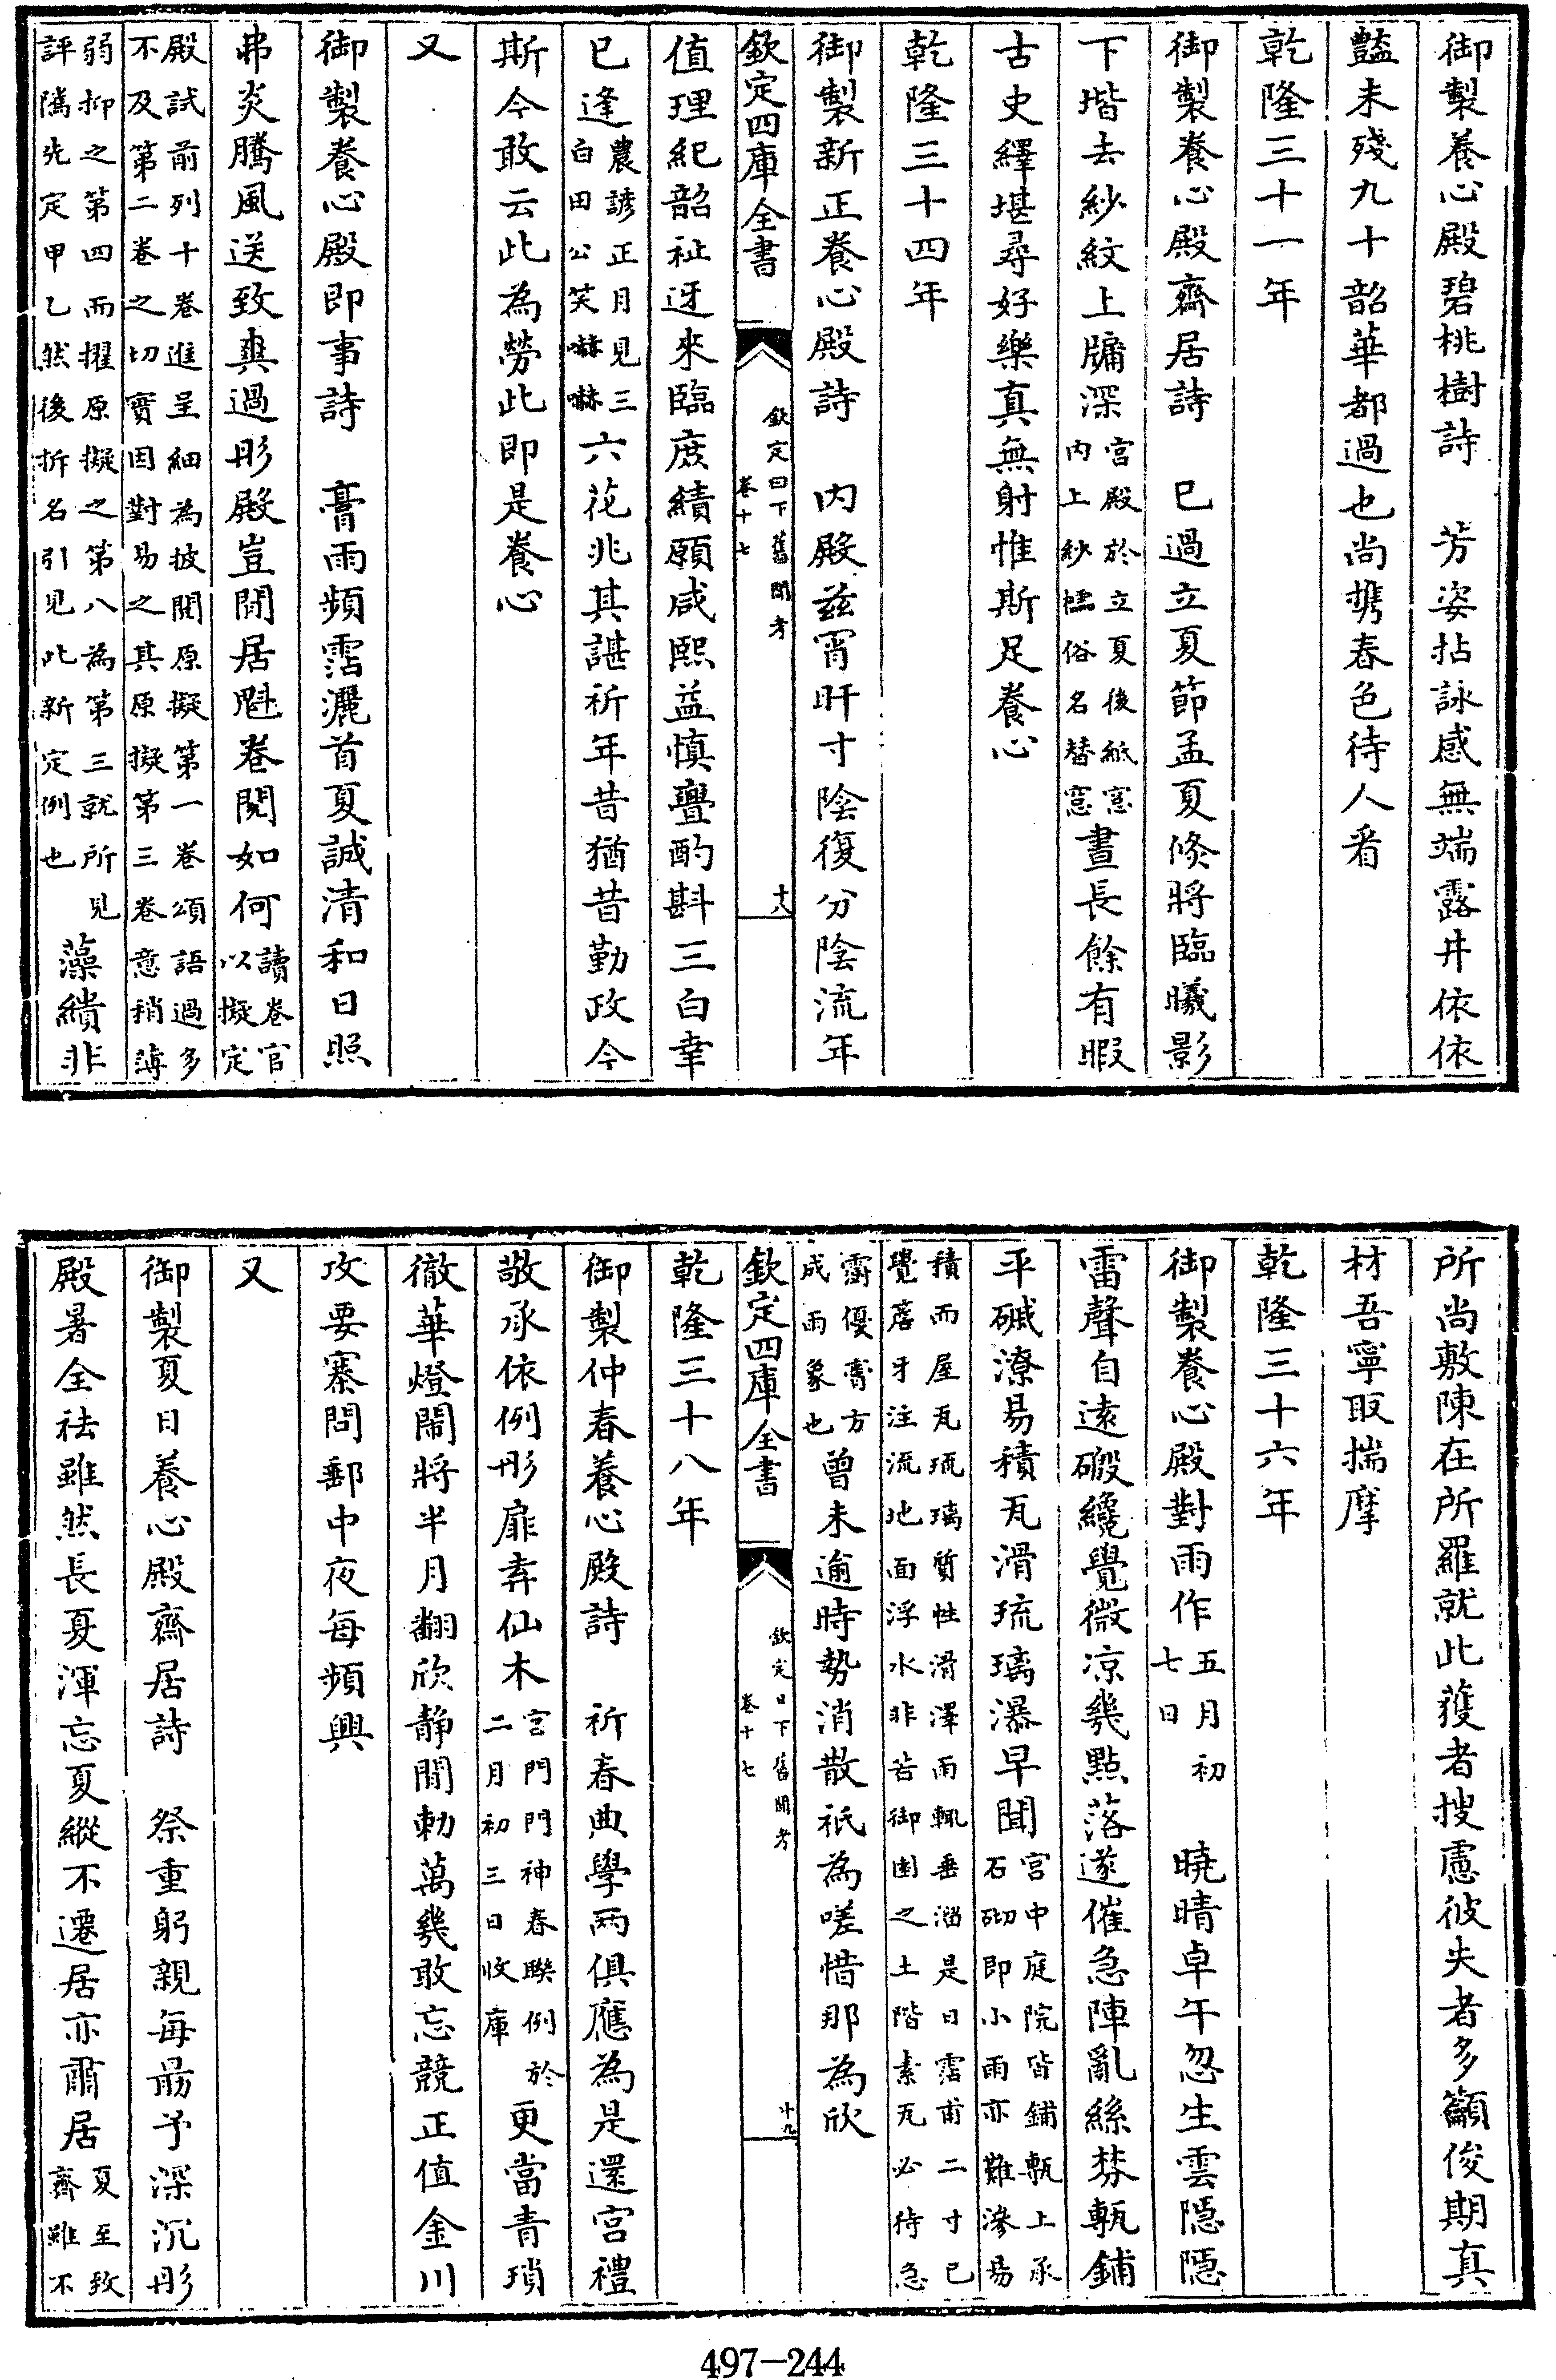 御製養心殿碧桃樹詩　芳姿拈詠感無端露井依依
豔未殘九十韶華都過也尚攜春色待人看
乾隆三十一年
御製養心殿齋居詩　已過立夏節孟夏倏將臨曦影
下堦去紗紋上牖深宮殿於立夏後紙窓内上紗櫺俗名替窓晝長餘有暇
古史繹堪尋好樂真無射惟斯足養心
乾隆三十四年
御製新正養心殿詩　内殿兹宵旰寸陰復分陰流年
欽定四庫全書　欽定日下舊聞考卷十七　十八
值理紀韶祉迓來臨庶績願咸熙益慎亹酌斟三白幸
已逢農諺正月見三白田公笑嚇嚇六花兆其諶祈年昔猶昔勤政今
斯今敢云此為勞此即是養心
又
御製養心殿即事詩　膏雨頻霑灑首夏誠清和日照
弗炎騰風送致爽過彤殿豈閒居魁卷閱如何讀卷官以擬定
殿試前列十卷進呈細為披閱原擬第一卷頌語過多不及第二卷之切實因對易之其原擬第三卷意稍薄
弱抑之第四而擢原擬之第八為第三就所見評隲先定甲乙然後拆名引見此新定例也藻繢非
所尚敷陳在所羅就此獲者搜慮彼失者多籲俊期真
材吾寧取揣摩
乾隆三十六年
御製養心殿對雨作五月初七日　曉晴卓午忽生雲隱隱
雷聲自遠磤纔覺微凉幾點落遂催急陣亂絲棼甎鋪
平磩潦易積瓦滑琉璃瀑早聞宮中庭院皆鋪甎上承石砌即小雨亦難滲易
積而屋瓦琉璃質性滑澤雨輒垂溜是日霑甫二寸已覺簷牙注流地面浮水非若御園之土階素瓦必待急
霨優霑方成雨象也曾未逾時勢消散祇為嗟惜那為欣
欽定四庫全書　欽定日下舊聞考卷十七　十九
乾隆三十八年
御製仲春養心殿詩　祈春典學兩俱應為是還宮禮
敬承依例彤扉弆仙木宮門門神春聯例於二月初三日收庫更當青瑣
徹華燈鬧將半月翻欣静閒勅萬幾敢忘競正值金川
攻要寨問郵中夜每頻興
又
御製夏日養心殿齋居詩　祭重躬親每前予深沉彤
殿暑全祛雖然長夏渾忘夏縱不遷居亦爾居夏至致齋雖不
497-244